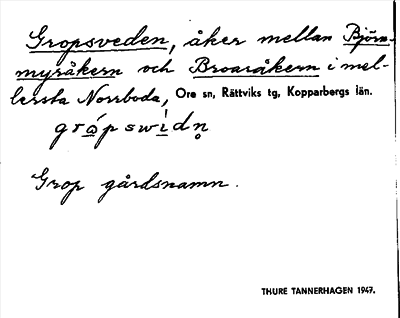 Gropsveden, åker mellan Björn-
myråkern och Broaråkern i mel-
lersta Norrboda, Ore sn, Rättviks tg, Kopparbergs län.
grápswìdn̥
Grop gårdsnamn.
THURE TANNERHAGEN 1947.